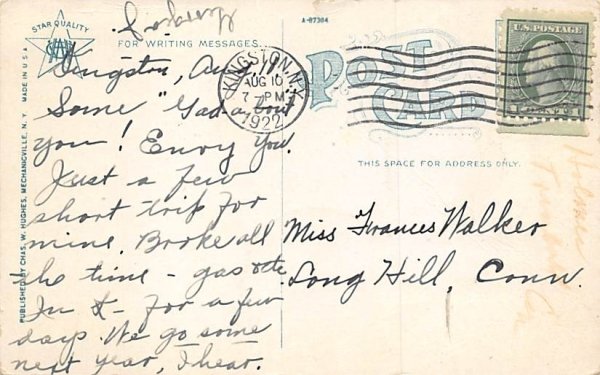 STAR QUALITY
MADE IN U S A
PUBLISHED BY CHAS. W. HUGHES, MECHANICVILLE, N. Y.
A-87384
FOR WRITING MESSAGES.
POST CARD
THIS SPACE FOR ADDRESS ONLY.
U.S. POSTAGE
1 CENT 1
KINGSTON, N.Y.
AUG 10
7-PM
1922
Kingston, Aug
Some "Gad-a-bout
you! Envy you.
Just a few
short trip for
mine. Broke all
the time - gas etc.
In K- for a few
days. We go some
next year, I hear.
Miss Frances Walker
Long Hill, Conn.